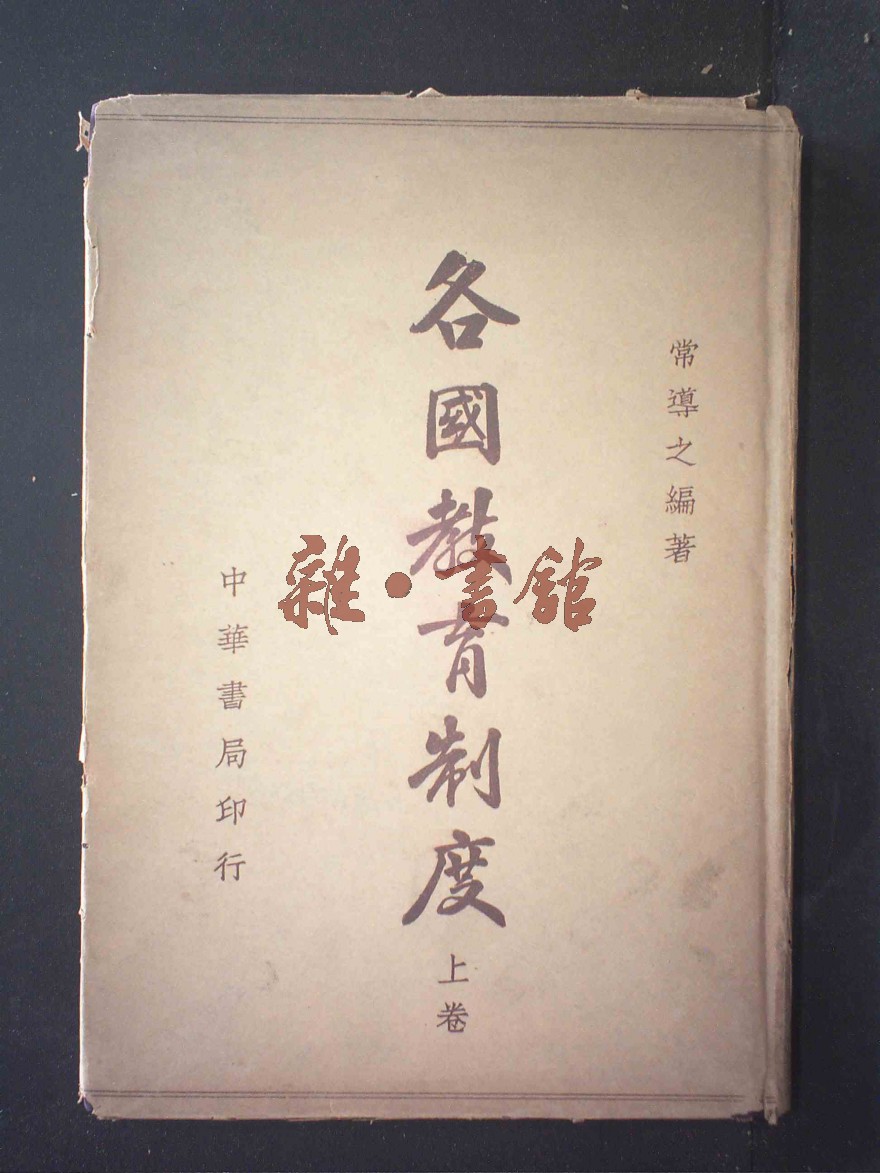 常導之編著
各國教育制度
上卷
中華書局印行
雜·書館